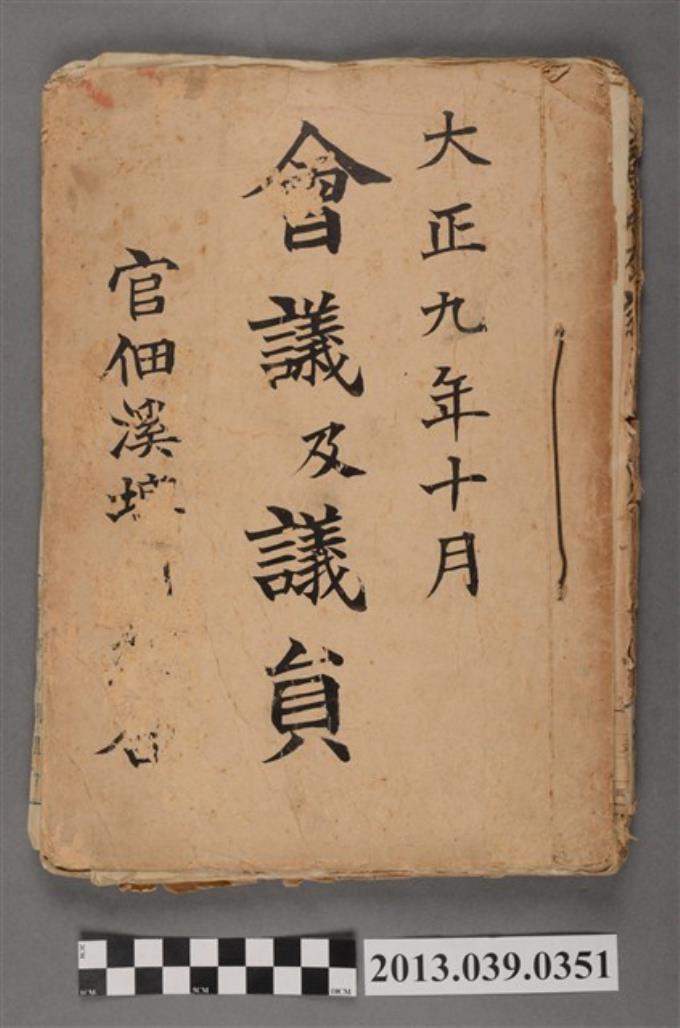 大正九年十月
會議及議員
官佃溪埤
2013.039.0351